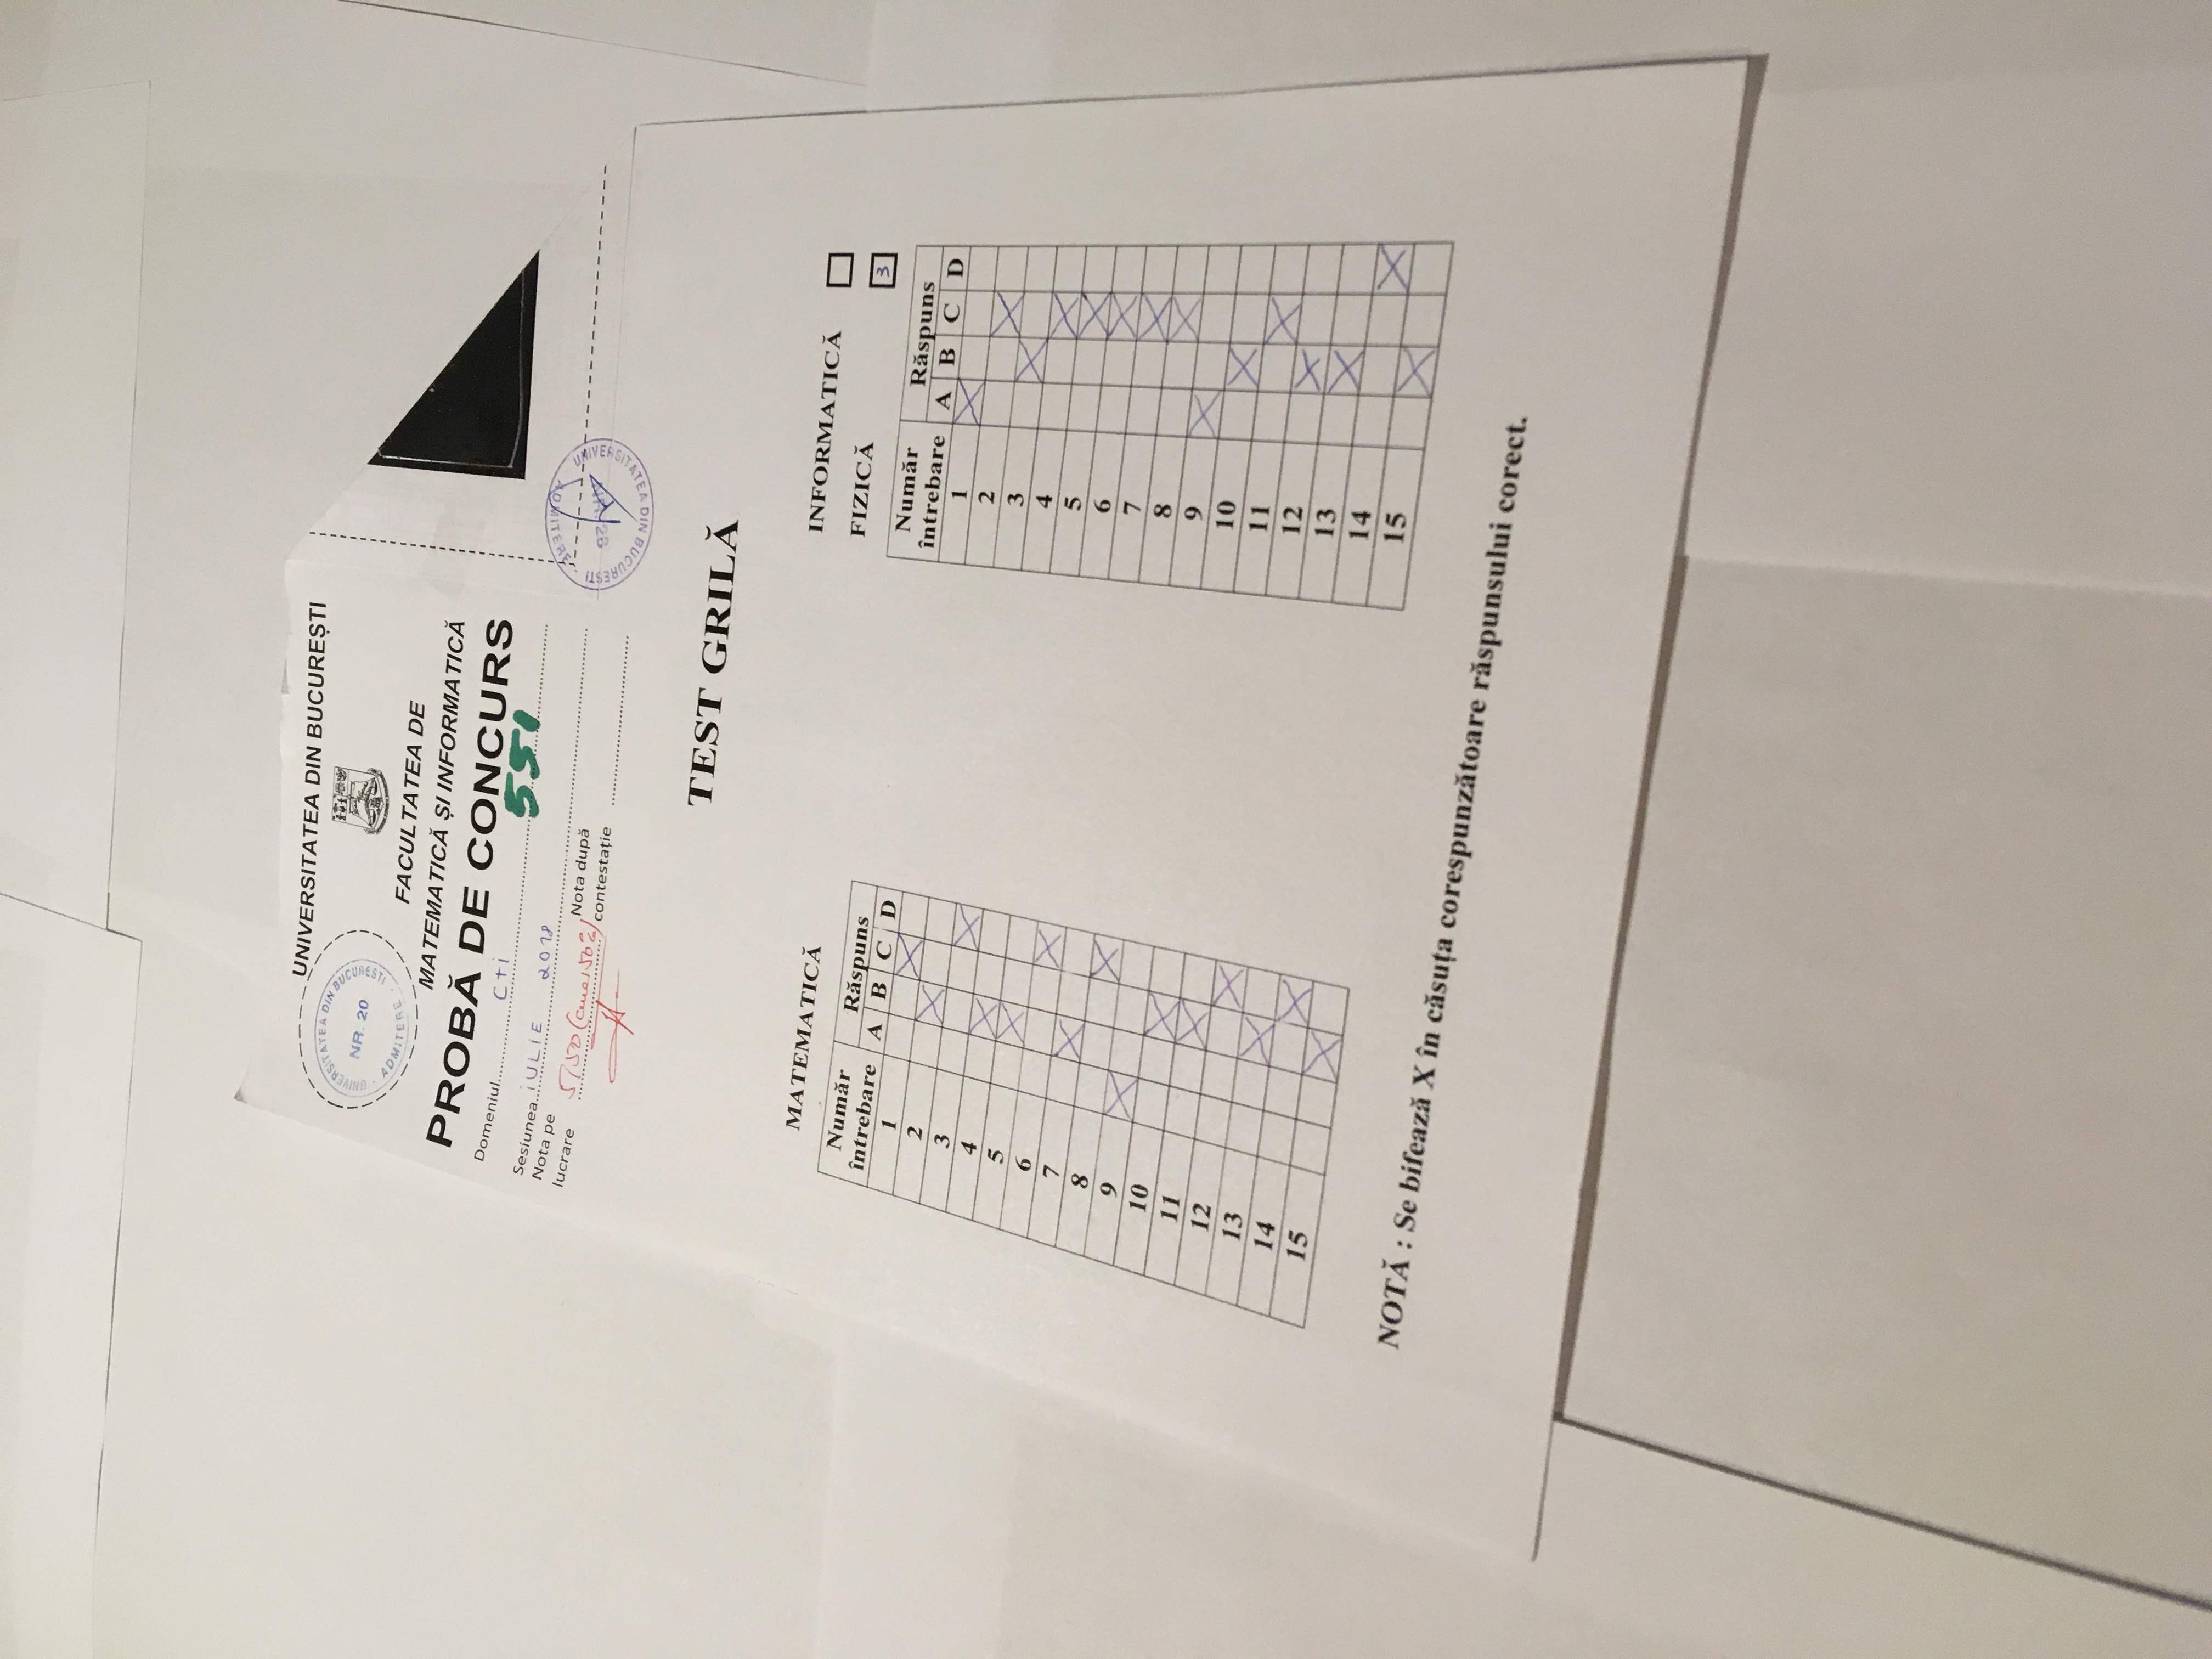 UNIVERSITATEA DIN BUCUREȘTI
UNIVERSITATEA DIN BUCUREȘTI
NR. 20
ADMITERE
FACULTATEA DE
MATEMATICĂ ȘI INFORMATICĂ
PROBĂ DE CONCURS
Domeniul CTI
551
Sesiunea IULIE 2018
Nota pe
lucrare
Nota după
contestație
UNIVERSITATEA DIN BUCUREȘTI
ADMITERE
TEST GRILĂ
MATEMATICĂ
Număr
întrebare
Răspuns
A B C D
1 X
2 X
3 X
4 X
5 X
6 X
7 X
8 X
9 X
10 X
11 X
12 X
13 X
14 X
15 X
INFORMATICĂ
FIZICĂ 3
Număr
întrebare
Răspuns
A B C D
1 X
2 X
3 X
4 X
5 X
6 X
7 X
8 X
9 X
10 X
11 X
12 X
13 X
14 X
15 X
NOTĂ : Se bifează X în căsuța corespunzătoare răspunsului corect.